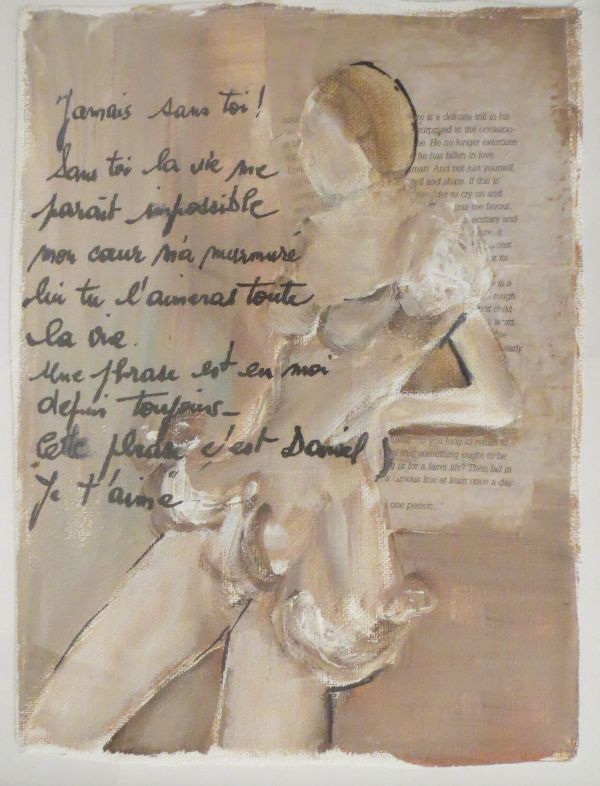 Jamais sans toi!
Sans toi la vie me
paraît impossible
mon cœur m'a murmuré
lui tu l'aimeras toute
la vie.
Une phrase est en moi
depuis toujours_
Cette phrase c'est Daniel
"Je t'aime"
re is a delicate trill in his
surprised at the occasion-
e. He no longer exercises
he has fallen in love
man. And not just yourself,
ll and share. If this is
shoulder to cry on and
ims too favour,
ecstasy and
it
is a
rough
child-
word,
early
you long to return to
that something ought to be
g or for a fairer life? Then fall in
famous line at least once a day:
one person..."